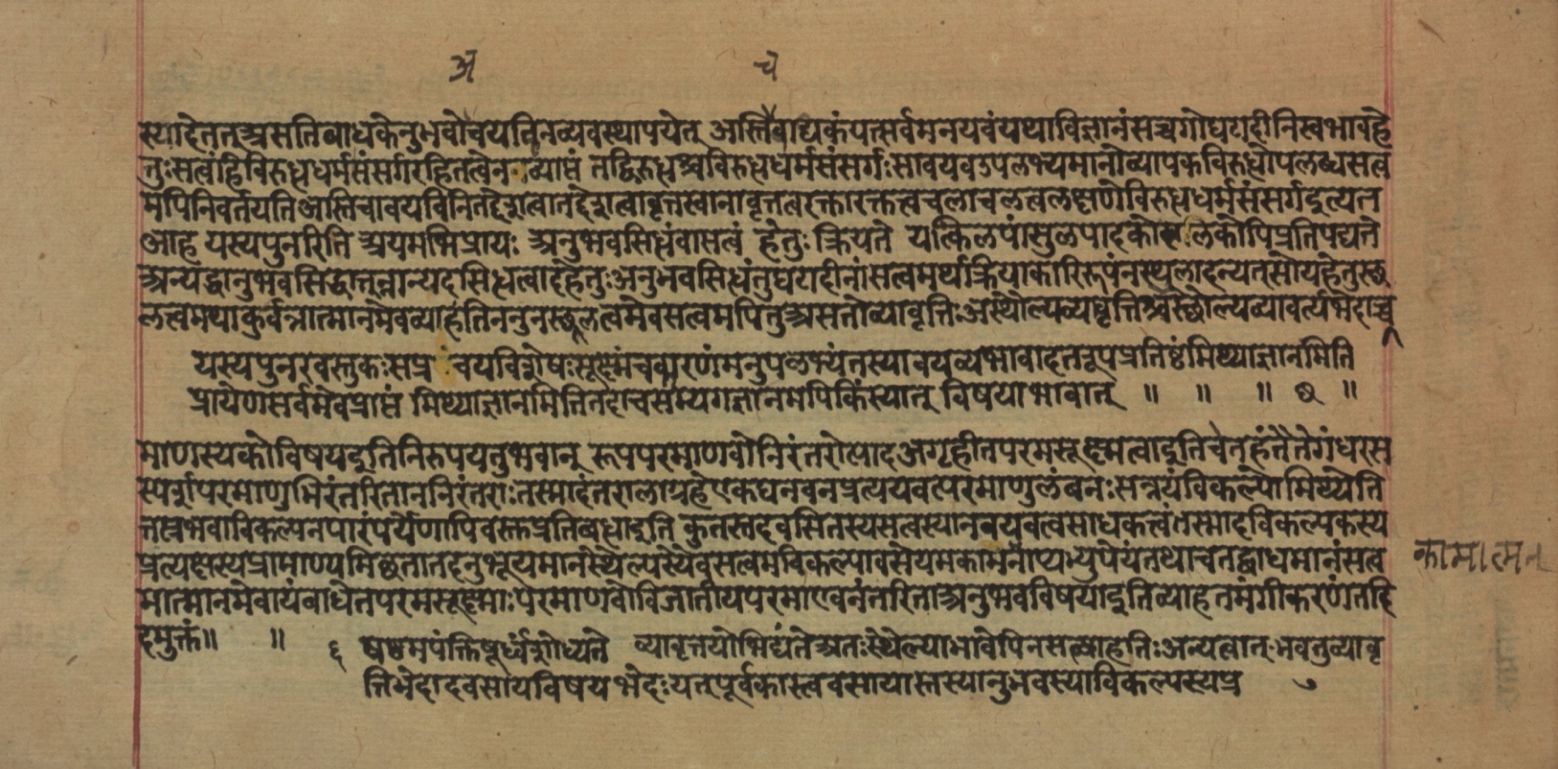 अ च
स्यादेतत् असति बाधकेनुभवोवयविनं व्यवस्थापयेत् अस्ति बाद्यकंयत्सर्वमनयवंयथाविज्ञानंसच्चगोघटादीनिस्वभावहे
तुःसत्वंहिविरुध्धधर्मसंसर्गरहितत्वेनव्याप्तं तद्विरुध्धश्चविरुध्धधर्मसंसर्गःसावयवउपलभ्यमानोव्यापकविरुध्धोपलब्ध्यसत्व
मपिनिवर्तयतिअस्तिचावयविनितद्देशत्वातद्देशत्वावृत्तत्वानावृत्तत्वरक्तारक्तत्वचलाचलत्वलक्षणोविरुध्धधर्मसंसर्गइत्यत
आह यस्यपुनरिति अयमभिप्रायः अनुभवसिध्धंवासत्वं हेतुः क्रियते यत्किलपांसुळपादकोहालिकोपिप्रतिपद्यते
अन्यद्वानुभवसिद्धात्तन्नान्यदसिध्धत्वादहेतुःअनुभवसिध्धंतुघटादीनांसत्वमर्थक्रियाकारिरूपंनस्थूलादन्यतसोयहेतुस्छू
लत्वमथाकुर्वन्नात्मानमेवव्याहंतिननुनस्छूलत्वमेवसत्वमपितुअसतोव्यावृत्तिःअस्थौल्यव्यावृत्तिश्चस्छौल्यव्यावर्त्यभेदाच्च
यस्यपुनरवस्तुकःसप्रचयविशेषःसूक्ष्मंचकारणंमनुपळभ्यंतस्यावयव्यभावादतद्रूपप्रतिष्ठंमिथ्याज्ञानमिति
प्रायेणसर्वमेवप्राप्तं मिथ्याज्ञानमितितदाचसम्यगज्ञानमपिकिंस्यात् विषयाभावात् ॥ ॥ ॥ छ ॥
माणस्यकोविषयइतिनिरुपयतुभवान् रूपपरमाणवोनिरंतरोत्पाद अगृहीतपरमसूक्ष्मत्वाइतिचेत्हंतैतेगंधरस
स्पर्शपरमाणुभिरंतरिताननिरंतराःतस्मादंतरालाग्रहेएकघनवनप्रत्ययवत्परमाणुलंबनःसन्नयंविकल्पोमिथ्येति
तत्प्रभवाविकल्पनपारंपर्येणापिवस्तप्रतिबध्धाइति कुतस्तदवसितस्यसत्वस्यानवयवत्वसाधकत्वंतस्मादविकल्पकस्य
प्रत्यक्षस्यप्रामाण्यमिछतातदनुभूयमानस्थैल्यस्यैवसत्वमविकल्पावसेयमकामनाप्यभ्युपेयंतथाचतद्बाधमानंसत्व
कामात्मन
मात्मानमेवायंबाधेतपरमसूक्ष्माःपरमाणवोविजातीयपरमाण्वनंतरिताअनुभवविषयाइतिव्याहतमंगीकरणंतदि
दमुक्तं॥ ॥ ६ षष्ठमपंक्तिषूर्ध्वंशोध्यते व्यावृत्तयोभिद्यंतेअतःस्थैल्याभावेपिनसत्वाहतिःअन्यत्वात् भवतुव्यावृ
त्तिभेदादवसायविषयभेदःयत्पूर्वकास्त्ववसायास्तस्यानुभवस्याविकल्पस्यप्र